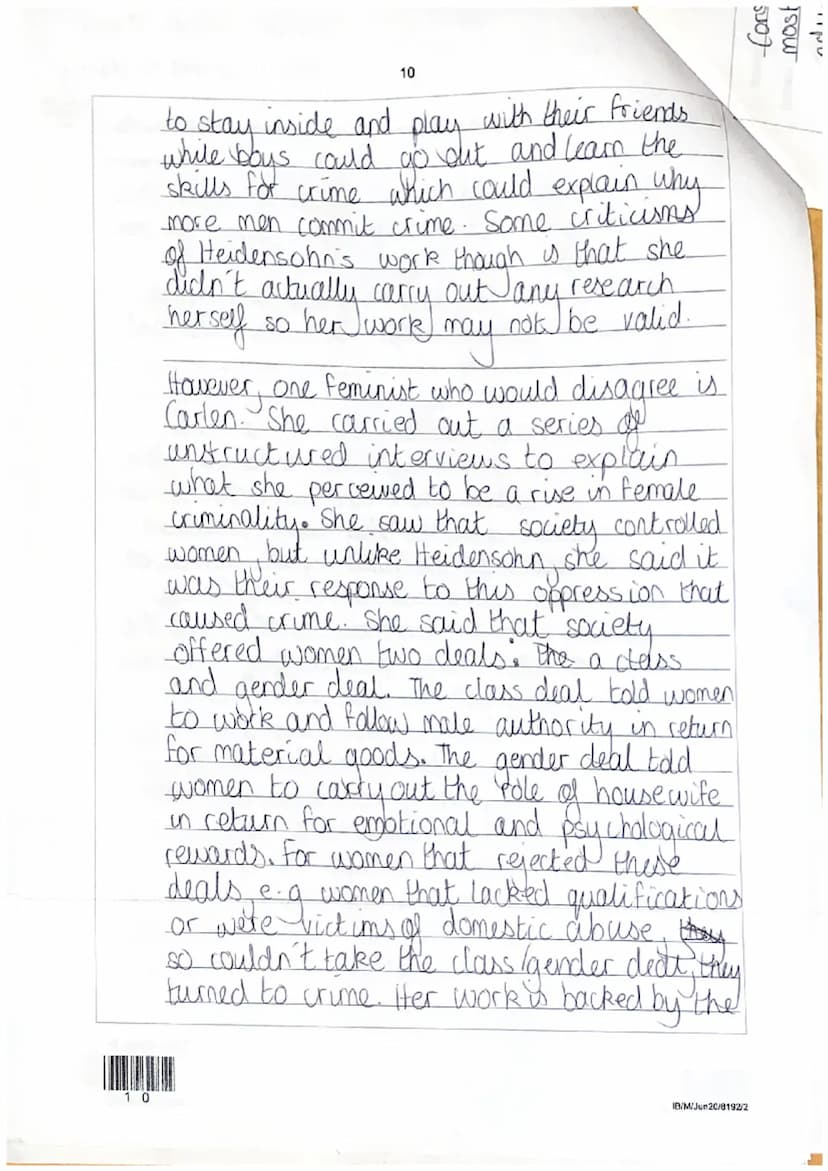 Cons
most
10
to stay inside and play with their friends
while boys could go out and learn the
skills for crime which could explain why
more men commit crime. Some criticisms
of Heidensohn's work though is that she
didn't actually carry out any research
herself so her work may not be valid.
However, one feminist who would disagree is
Carlen. She carried out a series of
unstructured interviews to explain
what she perceived to be a rise in female
criminality. She saw that society controlled
women, but unlike Heidensohn, she said it
was their response to this oppression that
caused crime. She said that society
offered women two deals: The a class
and gender deal. The class deal told women
to work and follow male authority in return
for material goods. The gender deal told
women to carry out the role of housewife
in return for emotional and psychological
rewards. For women that rejected these
deals, e.g women that lacked qualifications
or were victims of domestic abuse, they
so couldn't take the class/gender deal, they
turned to crime. Her work is backed by the
1 0
IB/M/Jun20/8192/2